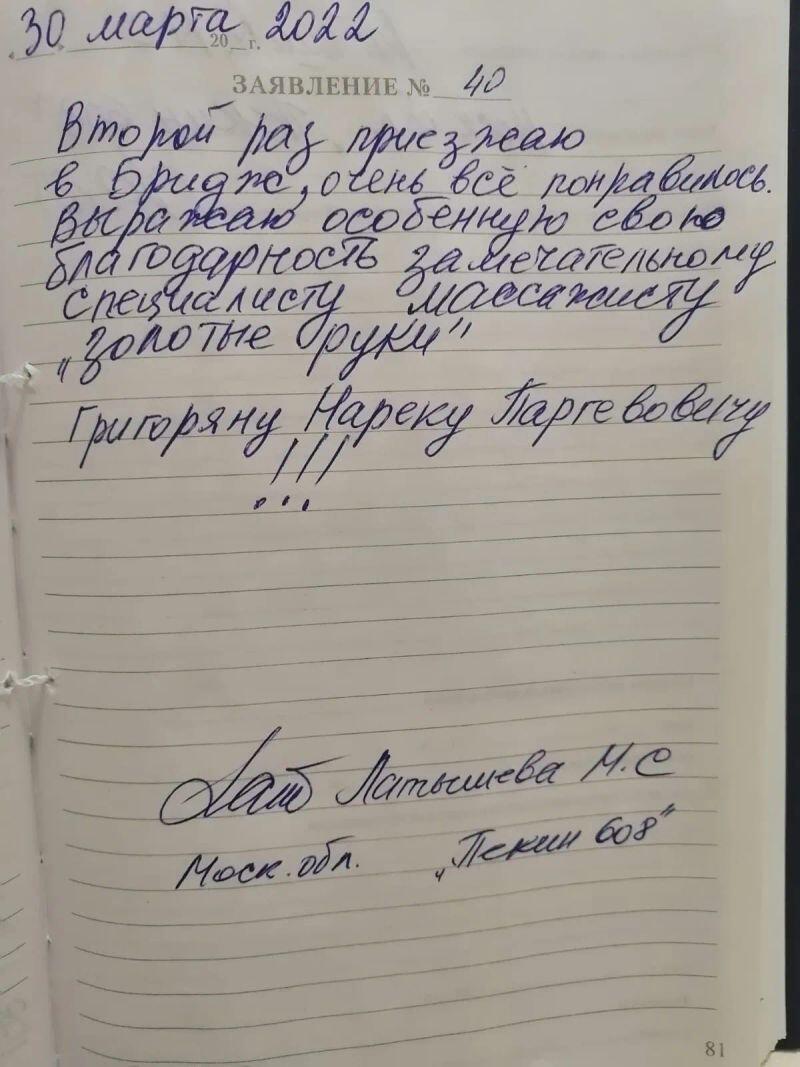 30 марта 2022
20 г.
ЗАЯВЛЕНИЕ № 40
Второй раз приезжаю
в Бридж, очень всё понравилось.
Выражаю особенную свою
благодарность замечательному
специалисту массажисту
„золотые руки"
Григоряну Нареку Паргевовичу
!!!
Латышева М.С
Моск. обл. „Пекин 608"
81